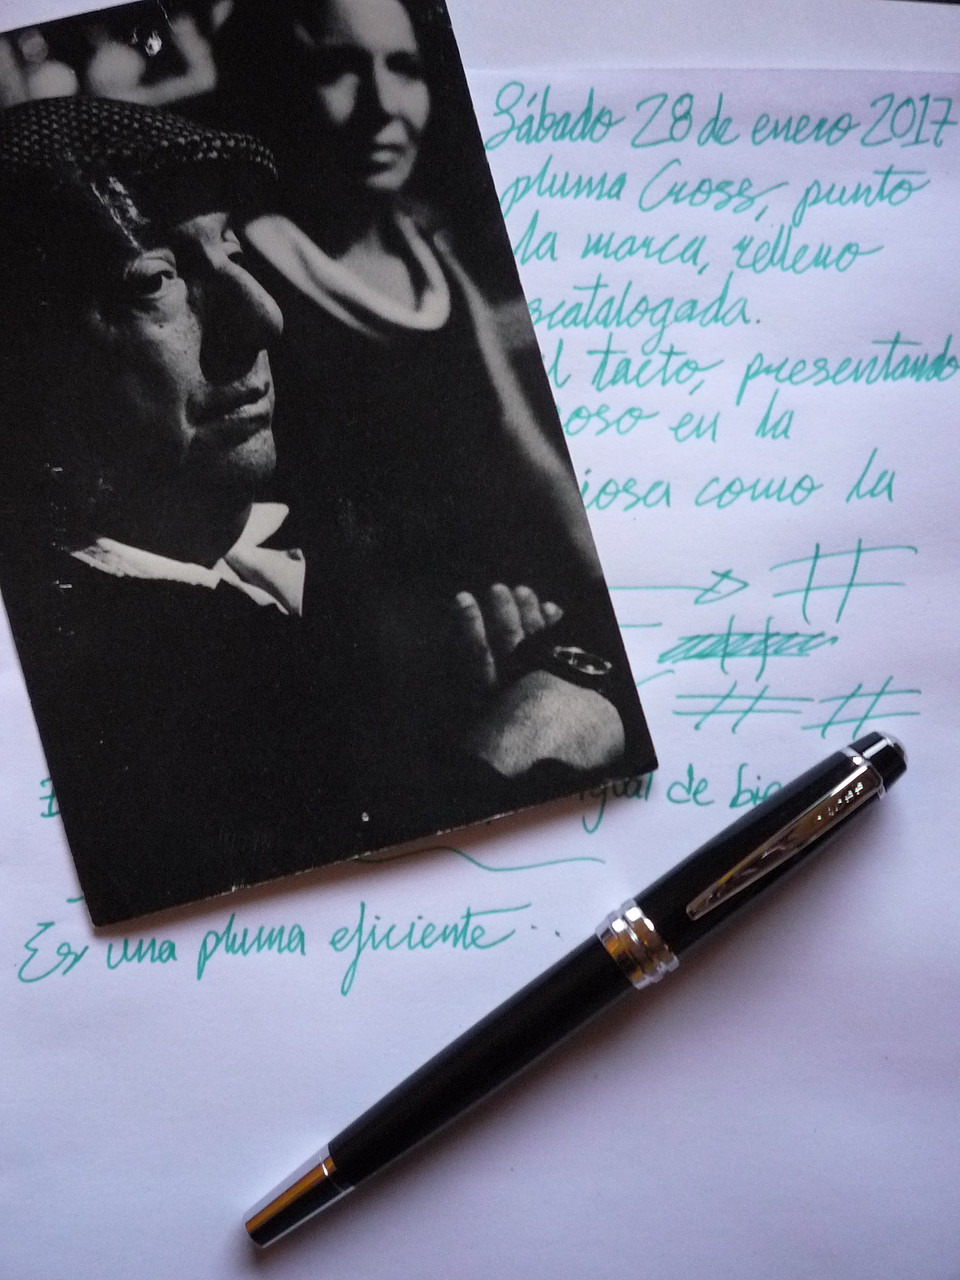 Sábado 28 de enero 2017
pluma Cross, punto
la marca, relleno
scatalogada.
l tacto, presentando
oso en la
iosa como la
igual de
Es una pluma eficiente...